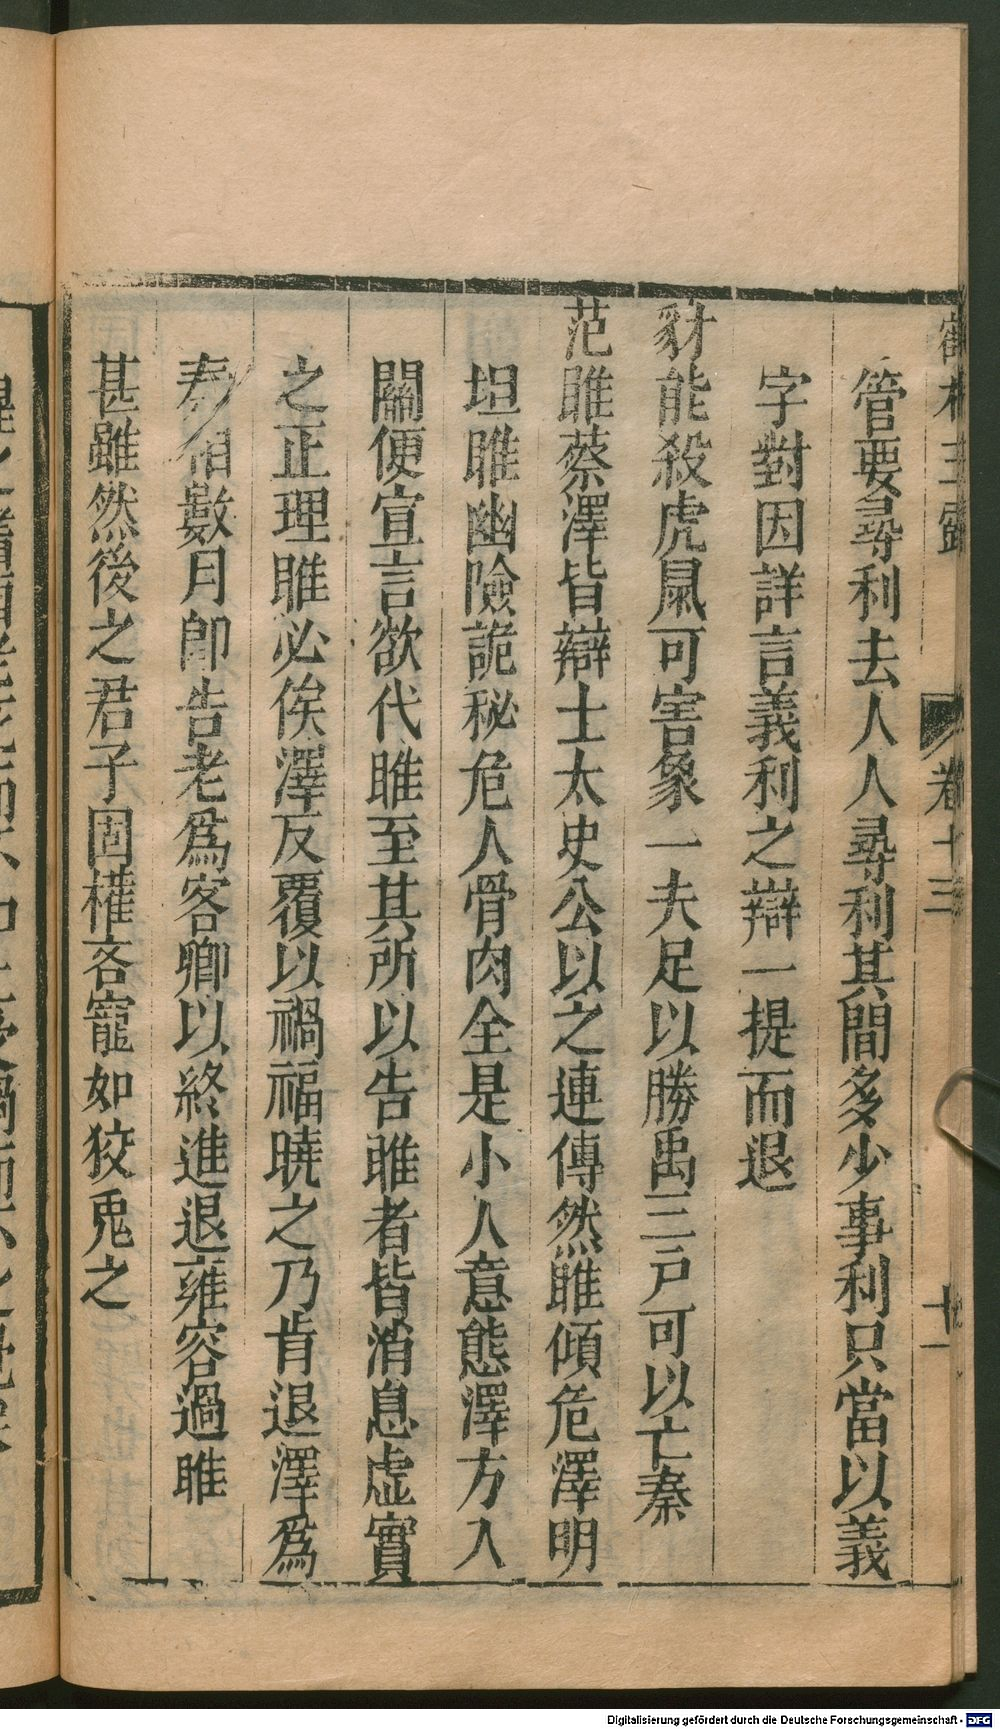 管要尋利去人人尋利其間多少事利只當以義
字對因詳言義利之辯一提而退
豺能殺虎鼠可害象一夫足以勝禹三戶可以亡秦
范雎蔡澤皆辯士太史公以之連傳然雎傾危澤明
坦雎幽險詭秘危人骨肉全是小人意態澤方入
關便宣言欲代雎至其所以告雎者皆消息虛實
之正理雎必俟澤反覆以禍福曉之乃肯退澤為
秦相數月卽告老爲客卿以終進退雍容過雎
甚雖然後之君子固權吝寵如狡兎之
卷十三
十一
Digitalisierung gefördert durch die Deutsche Forschungsgemeinschaft - DFG